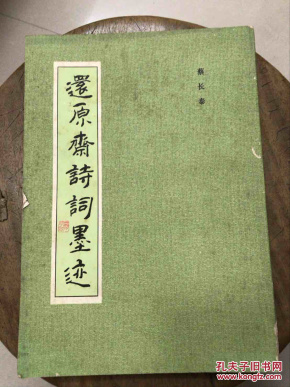 還原齋詩詞墨迹
蔡长泰
孔夫子旧书网